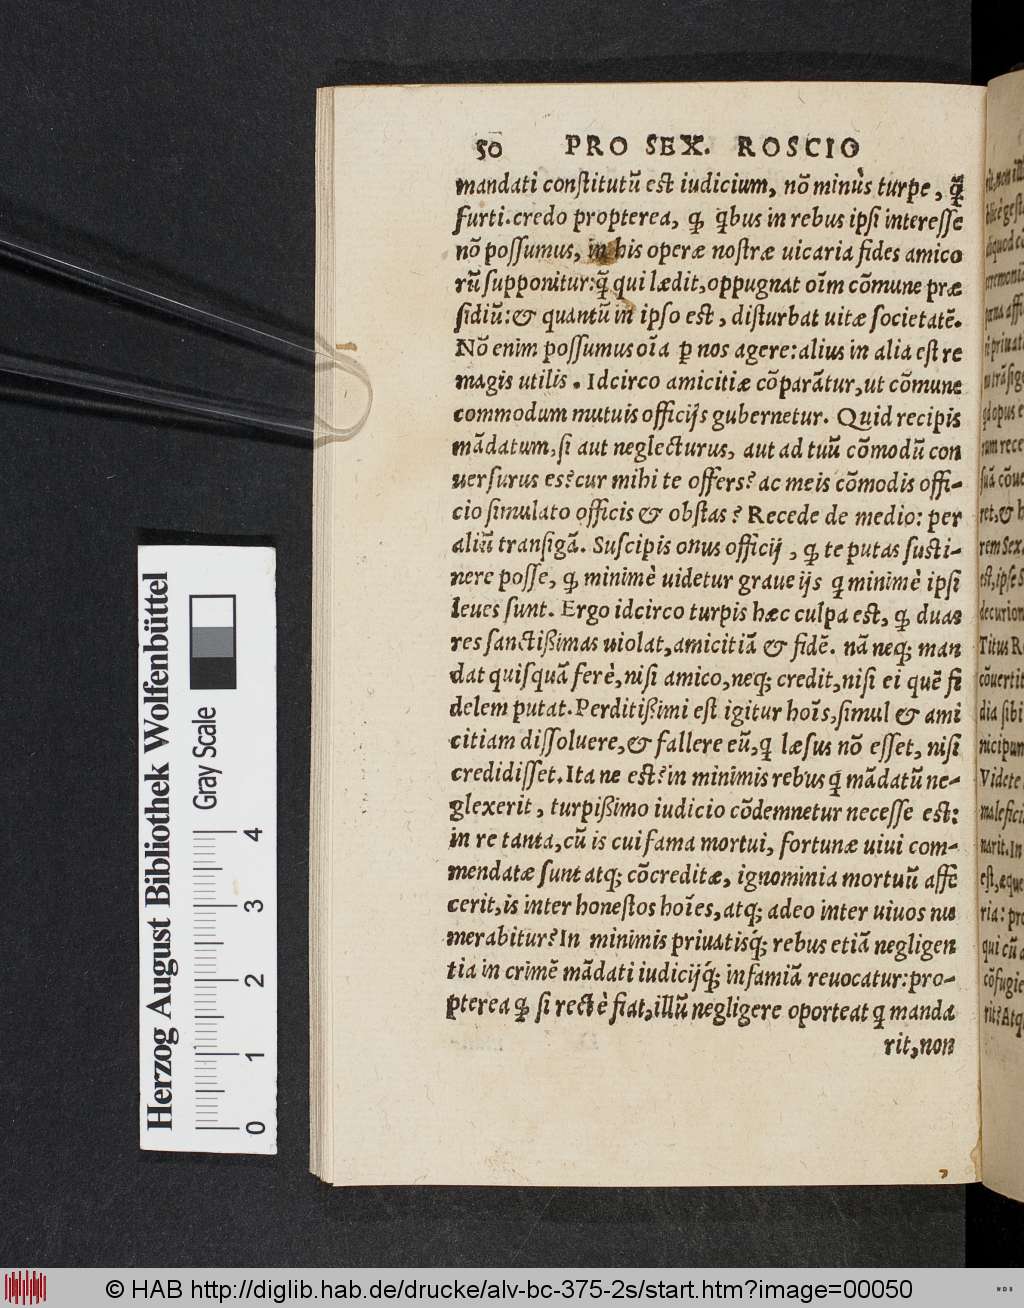 50 PRO SEX. ROSCIO
mandati constitutũ est iudicium, nõ minùs turpe, q̃
furti. credo propterea, q; qbus in rebus ipsi interesse
nõ possumus, in his operæ nostræ uicaria fides amico
rũ supponitur: q̃ qui lædit, oppugnat oĩm cõmune præ
sidiũ: & quantũ in ipso est, disturbat uitæ societatẽ.
Nõ enim possumus oĩa ꝑ nos agere: alius in alia est re
magis utilis. Idcirco amicitiæ cõparãtur, ut cõmune
commodum mutuis officijs gubernetur. Quid recipis
mãdatum, si aut neglecturus, aut ad tuũ cõmodũ con
uersurus es? cur mihi te offers? ac meis cõmodis offi-
cio simulato officis & obstas? Recede de medio: per
aliũ transigã. Suscipis onus officij, q; te putas susti-
nere posse, q; minimè uidetur graue ijs q minimè ipsi
leues sunt. Ergo idcirco turpis hæc culpa est, q; duas
res sanctißimas uiolat, amicitiã & fidẽ. nã neq; man
dat quisquã ferè, nisi amico, neq; credit, nisi ei quẽ fi
delem putat. Perditißimi est igitur hoĩs, simul & ami
citiam dissoluere, & fallere eũ, q læsus nõ esset, nisi
credidisset. Ita ne est? in minimis rebus q mãdatũ ne-
glexerit, turpißimo iudicio cõdemnetur necesse est:
in re tanta, cũ is cui fama mortui, fortunæ uiui com-
mendatæ sunt atq; cõcreditæ, ignominia mortuũ affe
cerit, is inter honestos hoĩes, atq; adeo inter uiuos nu
merabitur? In minimis priuatisq́; rebus etiã negligen
tia in crimẽ mãdati iudicijq́; infamiã reuocatur: pro-
pterea q; si rectè fiat, illũ negligere oporteat q manda
rit, non
Herzog August Bibliothek Wolfenbüttel
Gray Scale
0 1 2 3 4
© HAB http://diglib.hab.de/drucke/alv-bc-375-2s/start.htm?image=00050